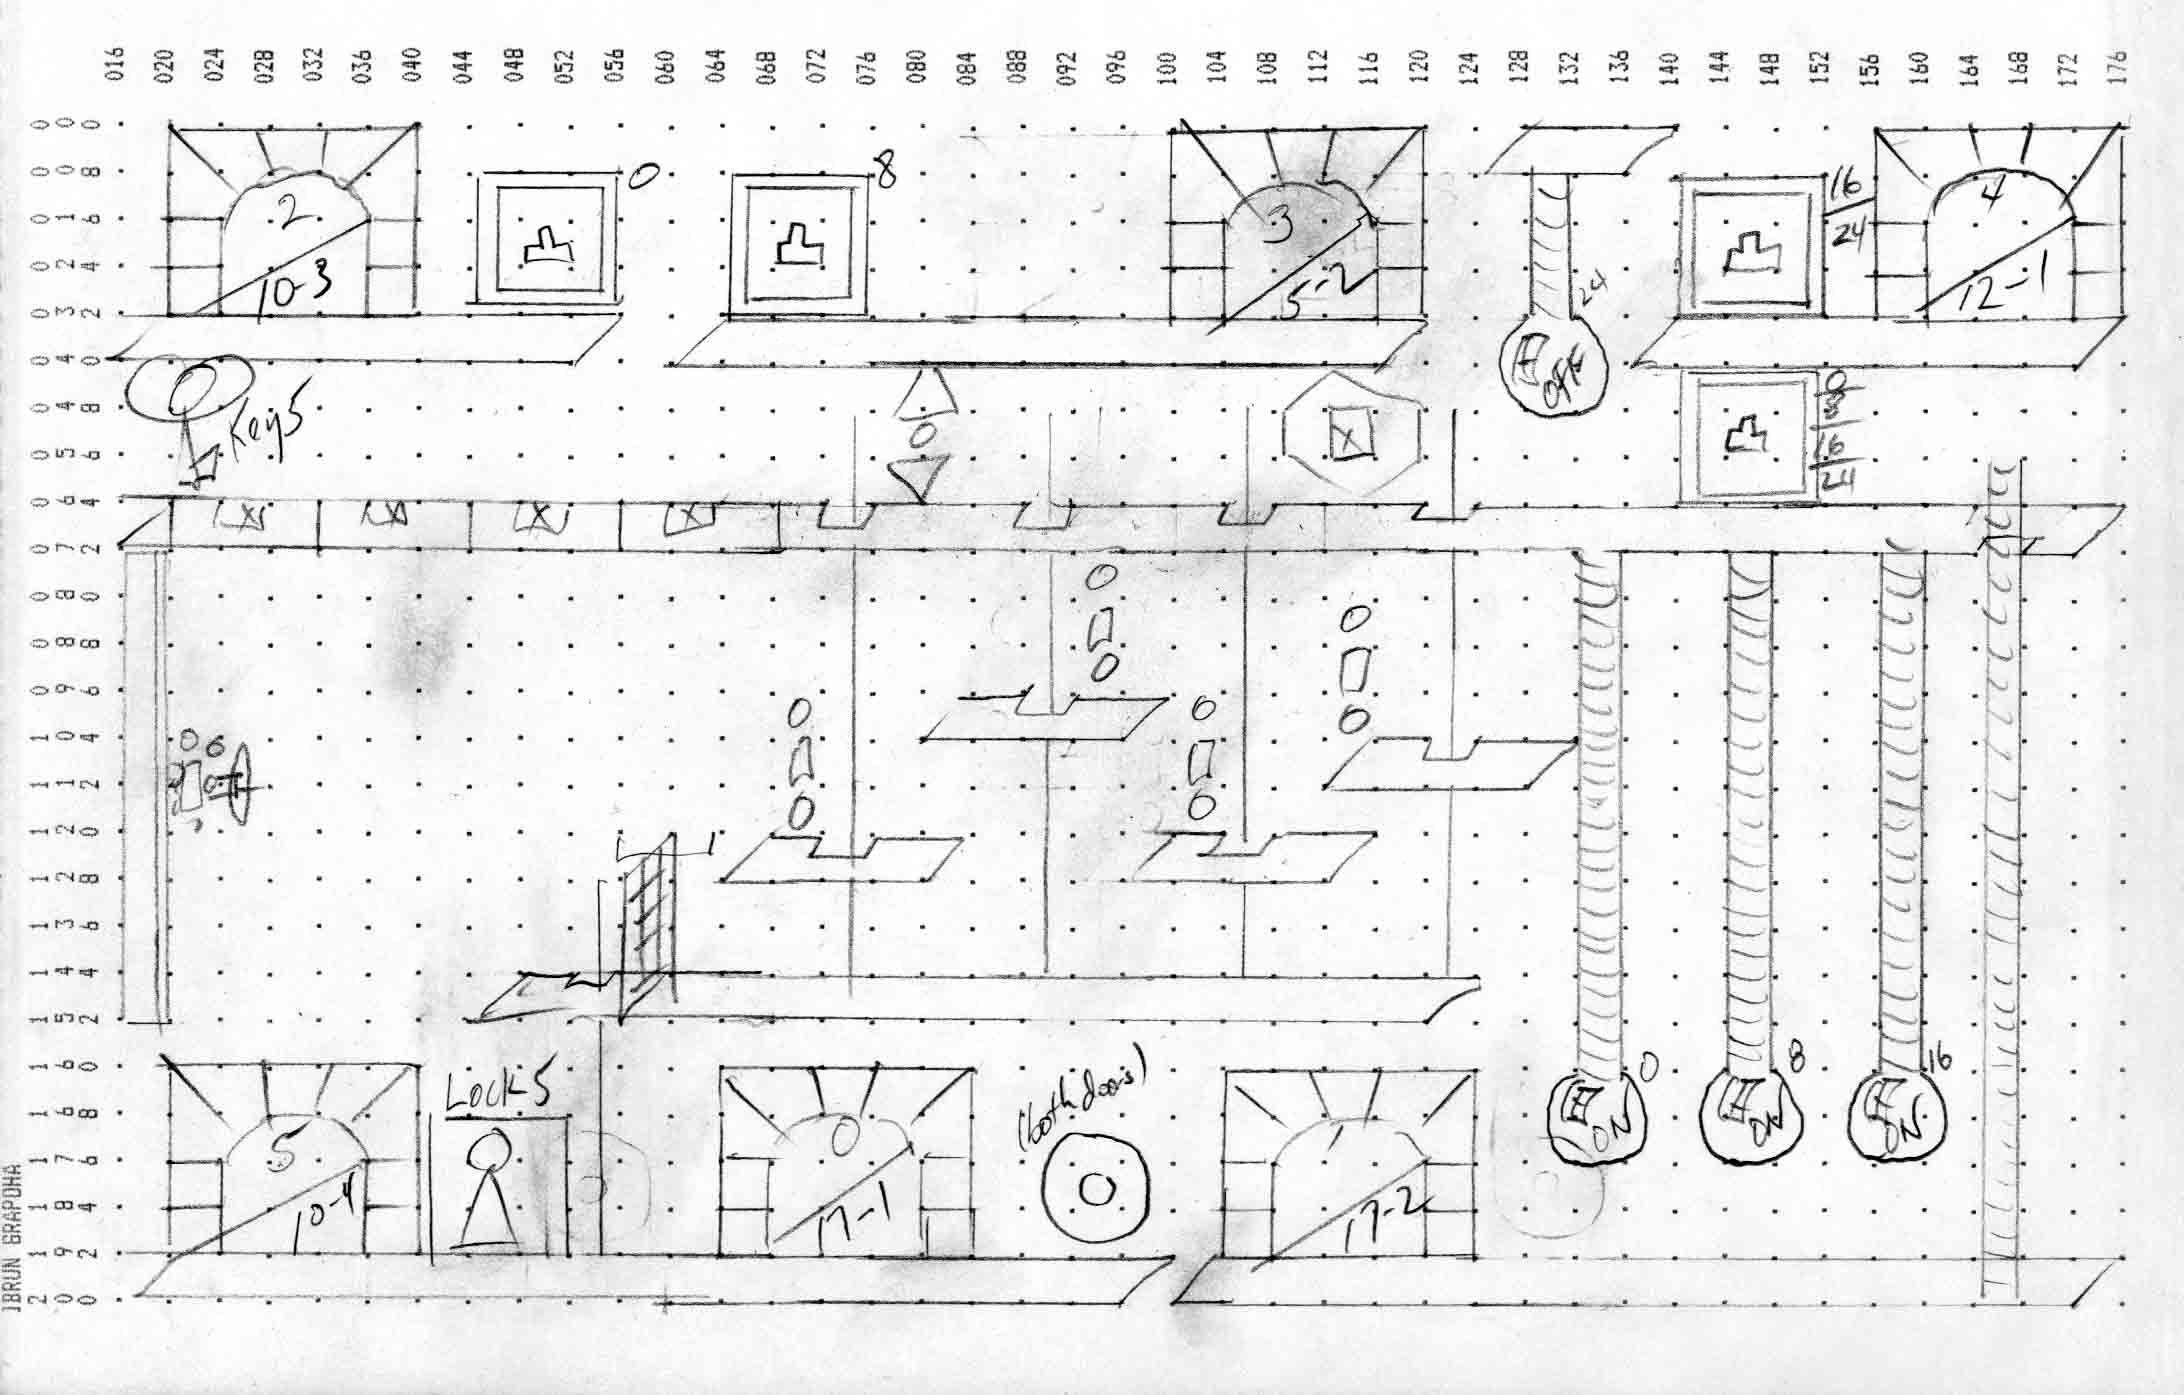 016 020 024 028 032 036 040 044 048 052 056 060 064 068 072 076 080 084 088 092 096 100 104 108 112 116 120 124 128 132 136 140 144 148 152 156 160 164 168 172 176
000
008
016
024
032
040
048
056
064
072
080
088
096
104
112
120
128
136
144
152
160
168
176
184
192
200
2
10-3
0
8
3
5-2
24
OFF
16
24
4
12-1
Key 5
0
8
16
24
5
10-4
Lock 5
0
17-1
(both doors)
1
17-2
0
ON
8
ON
16
ON